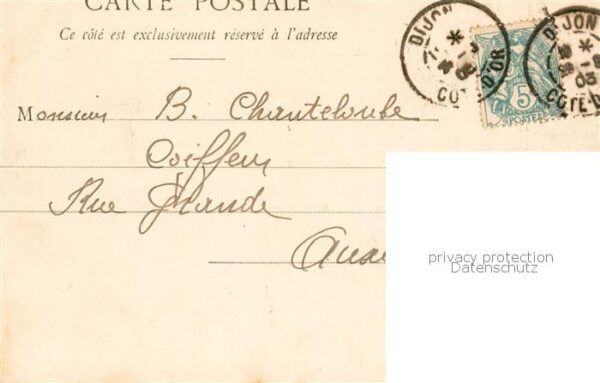 CARTE POSTALE
Ce côté est exclusivement réservé à l'adresse
DIJON
COTE D'OR
5
POSTES
DIJON
COTE-D
Monsieur B. Chanteloube
Coiffeur
Rue Grande
privacy protection
Datenschutz